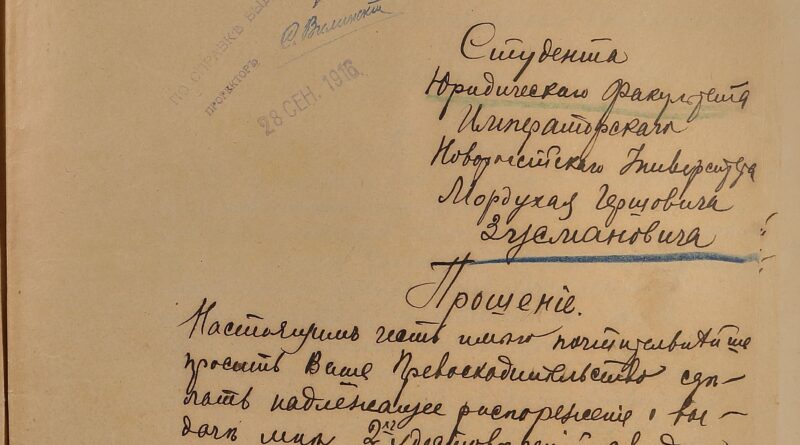 ПО СПРАВКѢ
ПРОРЕКТОРЪ
28 СЕН. 1916
Студента
Юридическаго Факультета
Императорскаго
Новороссійскаго Университета
Мордухая Гершовича
Зусмановича
Прошеніе.
Настоящимъ честь имѣю почтительнѣйше
просить Ваше Превосходительство сдѣ-
лать надлежащее распоряженіе о вы-
дачѣ мнѣ